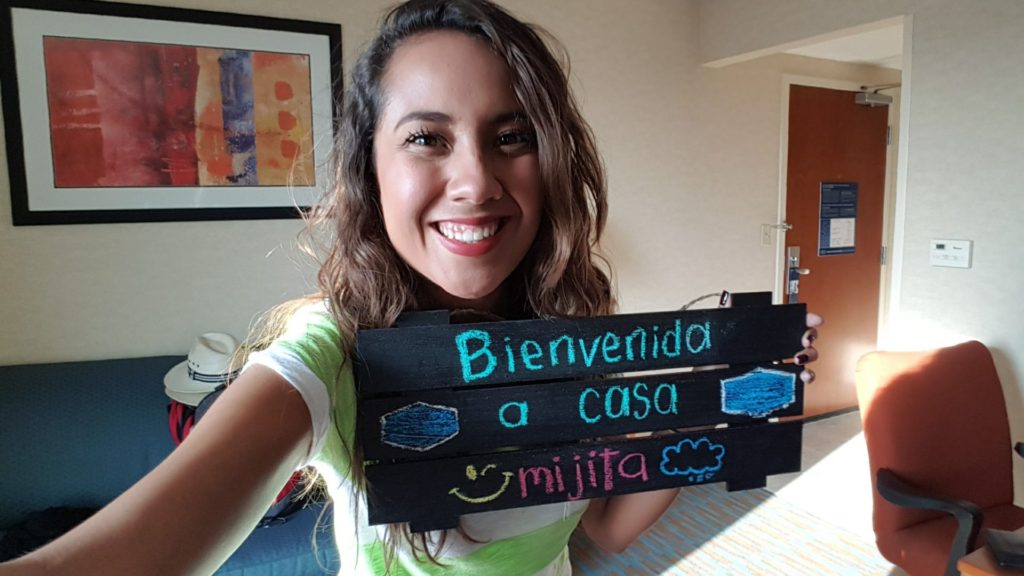 Bienvenida
a casa
mijita